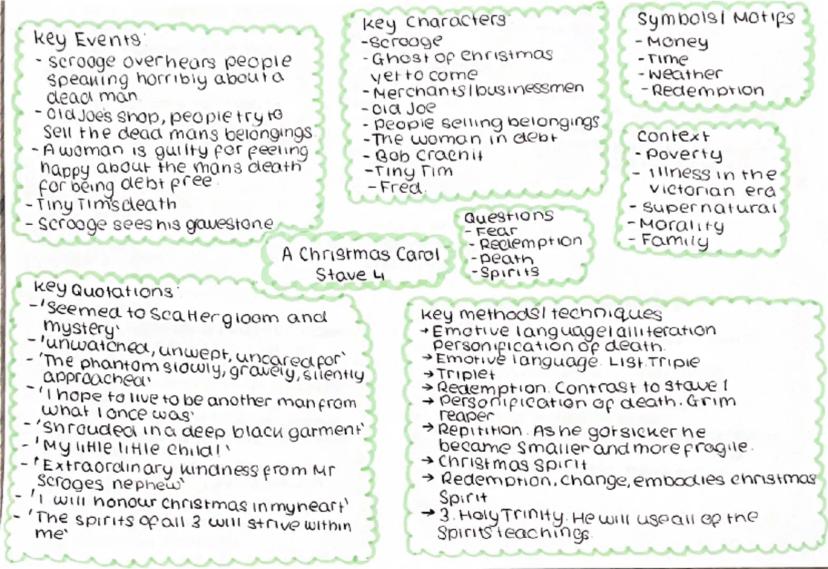 Key Events:
- Scrooge overhears people
speaking horribly about a
dead man.
- Old Joe's shop, people try to
sell the dead mans belongings
- A woman is guilty for feeling
happy about the mans death
for being debt free.
- Tiny Tim's death
- Scrooge sees his gravestone
Key Characters:
- Scrooge
- Ghost of Christmas
yet to come
- Merchants/businessmen
- Old Joe
- People selling belongings
- The woman in debt
- Bob Crachit
- Tiny Tim
- Fred.
Symbols/Motifs
- Money
- Time
- Weather
- Redemption
Context
- Poverty
- Illness in the
Victorian era
- Supernatural
- Morality
- Family
Questions
- Fear
- Redemption
- Death
- Spirits
A Christmas Carol
Stave 4
Key Quotations:
- 'Seemed to scatter gloom and
mystery'
- 'unwatched, unwept, uncared for'
- 'The phantom slowly, gravely, silently
approached'
- 'I hope to live to be another man from
what I once was'
- 'Shrouded in a deep black garment'
- 'My little little child!'
- 'Extraordinary kindness from Mr
Scroges nephew'
- 'I will honour christmas in my heart'
- 'The spirits of all 3 will strive within
me'
Key methods/techniques
→ Emotive language/alliteration
Personification of death.
→ Emotive language. List. Triple
→ Triplet
→ Redemption. Contrast to stave 1
→ Personification of death. Grim
reaper
→ Repitition. As he got sicker he
became smaller and more fragile.
→ Christmas Spirit
→ Redemption, change, embodies christmas
Spirit
→ 3. Holy Trinity. He will use all of the
Spirits teachings.